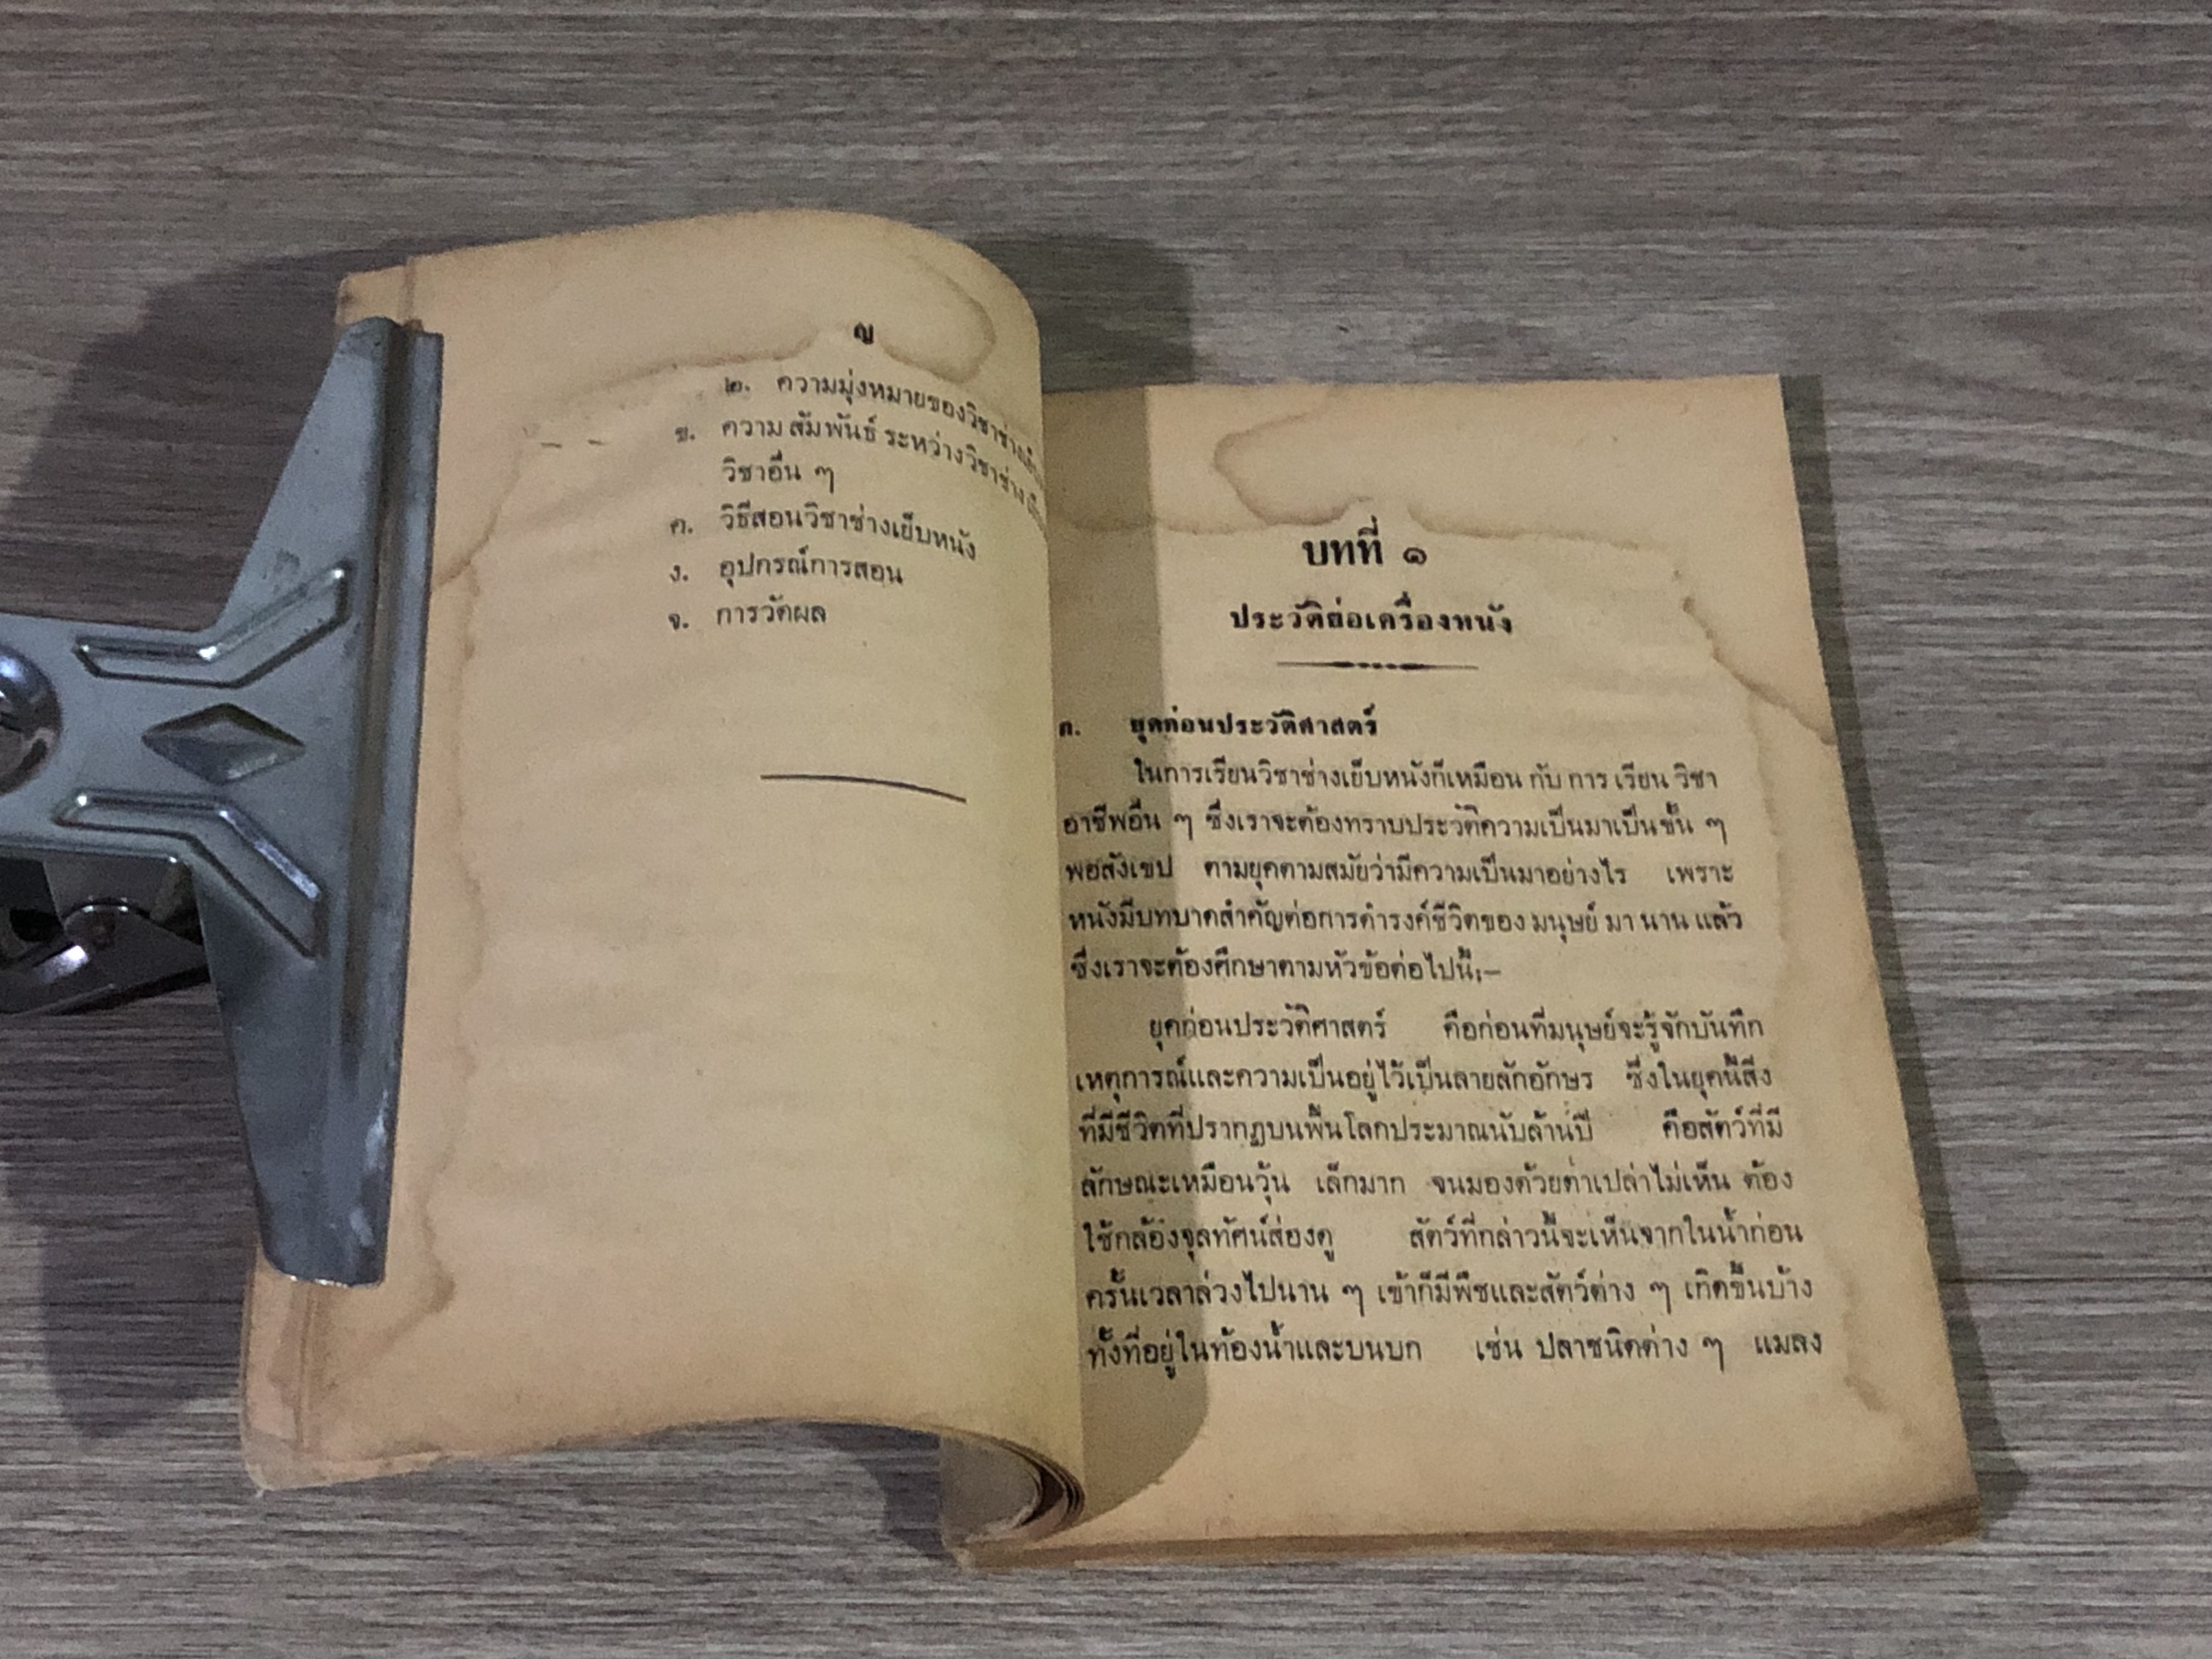 ญ
๒. ความมุ่งหมายของวิชาช่างเย็บ
ข. ความสัมพันธ์ระหว่างวิชาช่าง
วิชาอื่น ๆ
ค. วิธีสอนวิชาช่างเย็บหนัง
ง. อุปกรณ์การสอน
จ. การวัดผล
บทที่ ๑
ประวัติย่อเครื่องหนัง
ก. ยุคก่อนประวัติศาสตร์
ในการเรียนวิชาช่างเย็บหนังก็เหมือน กับ การ เรียน วิชา
อาชีพอื่น ๆ ซึ่งเราจะต้องทราบประวัติความเป็นมาเป็นขั้น ๆ
พอสังเขป ตามยุคตามสมัยว่ามีความเป็นมาอย่างไร เพราะ
หนังมีบทบาดสำคัญต่อการดำรงค์ชีวิตของ มนุษย์ มา นาน แล้ว
ซึ่งเราจะต้องศึกษาตามหัวข้อต่อไปนี้;–
ยุคก่อนประวัติศาสตร์ คือก่อนที่มนุษย์จะรู้จักบันทึก
เหตุการณ์และความเป็นอยู่ไว้เป็นลายลักอักษร ซึ่งในยุคนี้สิ่ง
ที่มีชีวิตที่ปรากฏบนพื้นโลกประมาณนับล้านปี คือสัตว์ที่มี
ลักษณะเหมือนวุ้น เล็กมาก จนมองด้วยตาเปล่าไม่เห็น ต้อง
ใช้กล้องจุลทัศน์ส่องดู สัตว์ที่กล่าวนี้จะเห็นจากในน้ำก่อน
ครั้นเวลาล่วงไปนาน ๆ เข้าก็มีพืชและสัตว์ต่าง ๆ เกิดขึ้นบ้าง
ทั้งที่อยู่ในท้องน้ำและบนบก เช่น ปลาชนิดต่าง ๆ แมลง